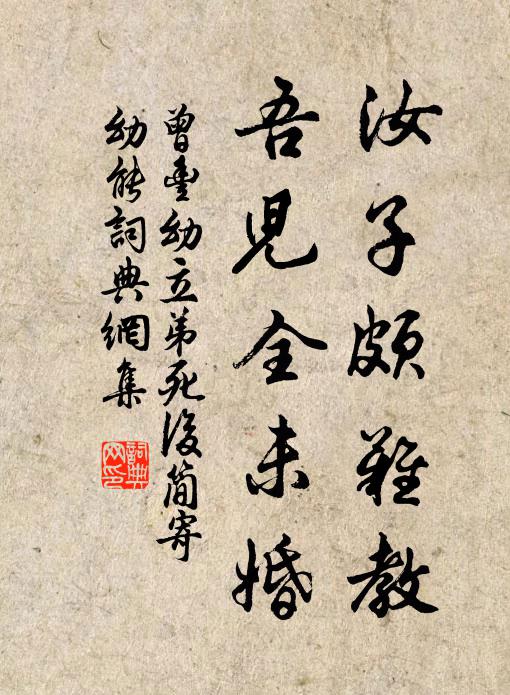 汝子頗難教
吾児全未婚
曾豊幼立弟死後簡寄
幼能詞典網集
詞典
网印